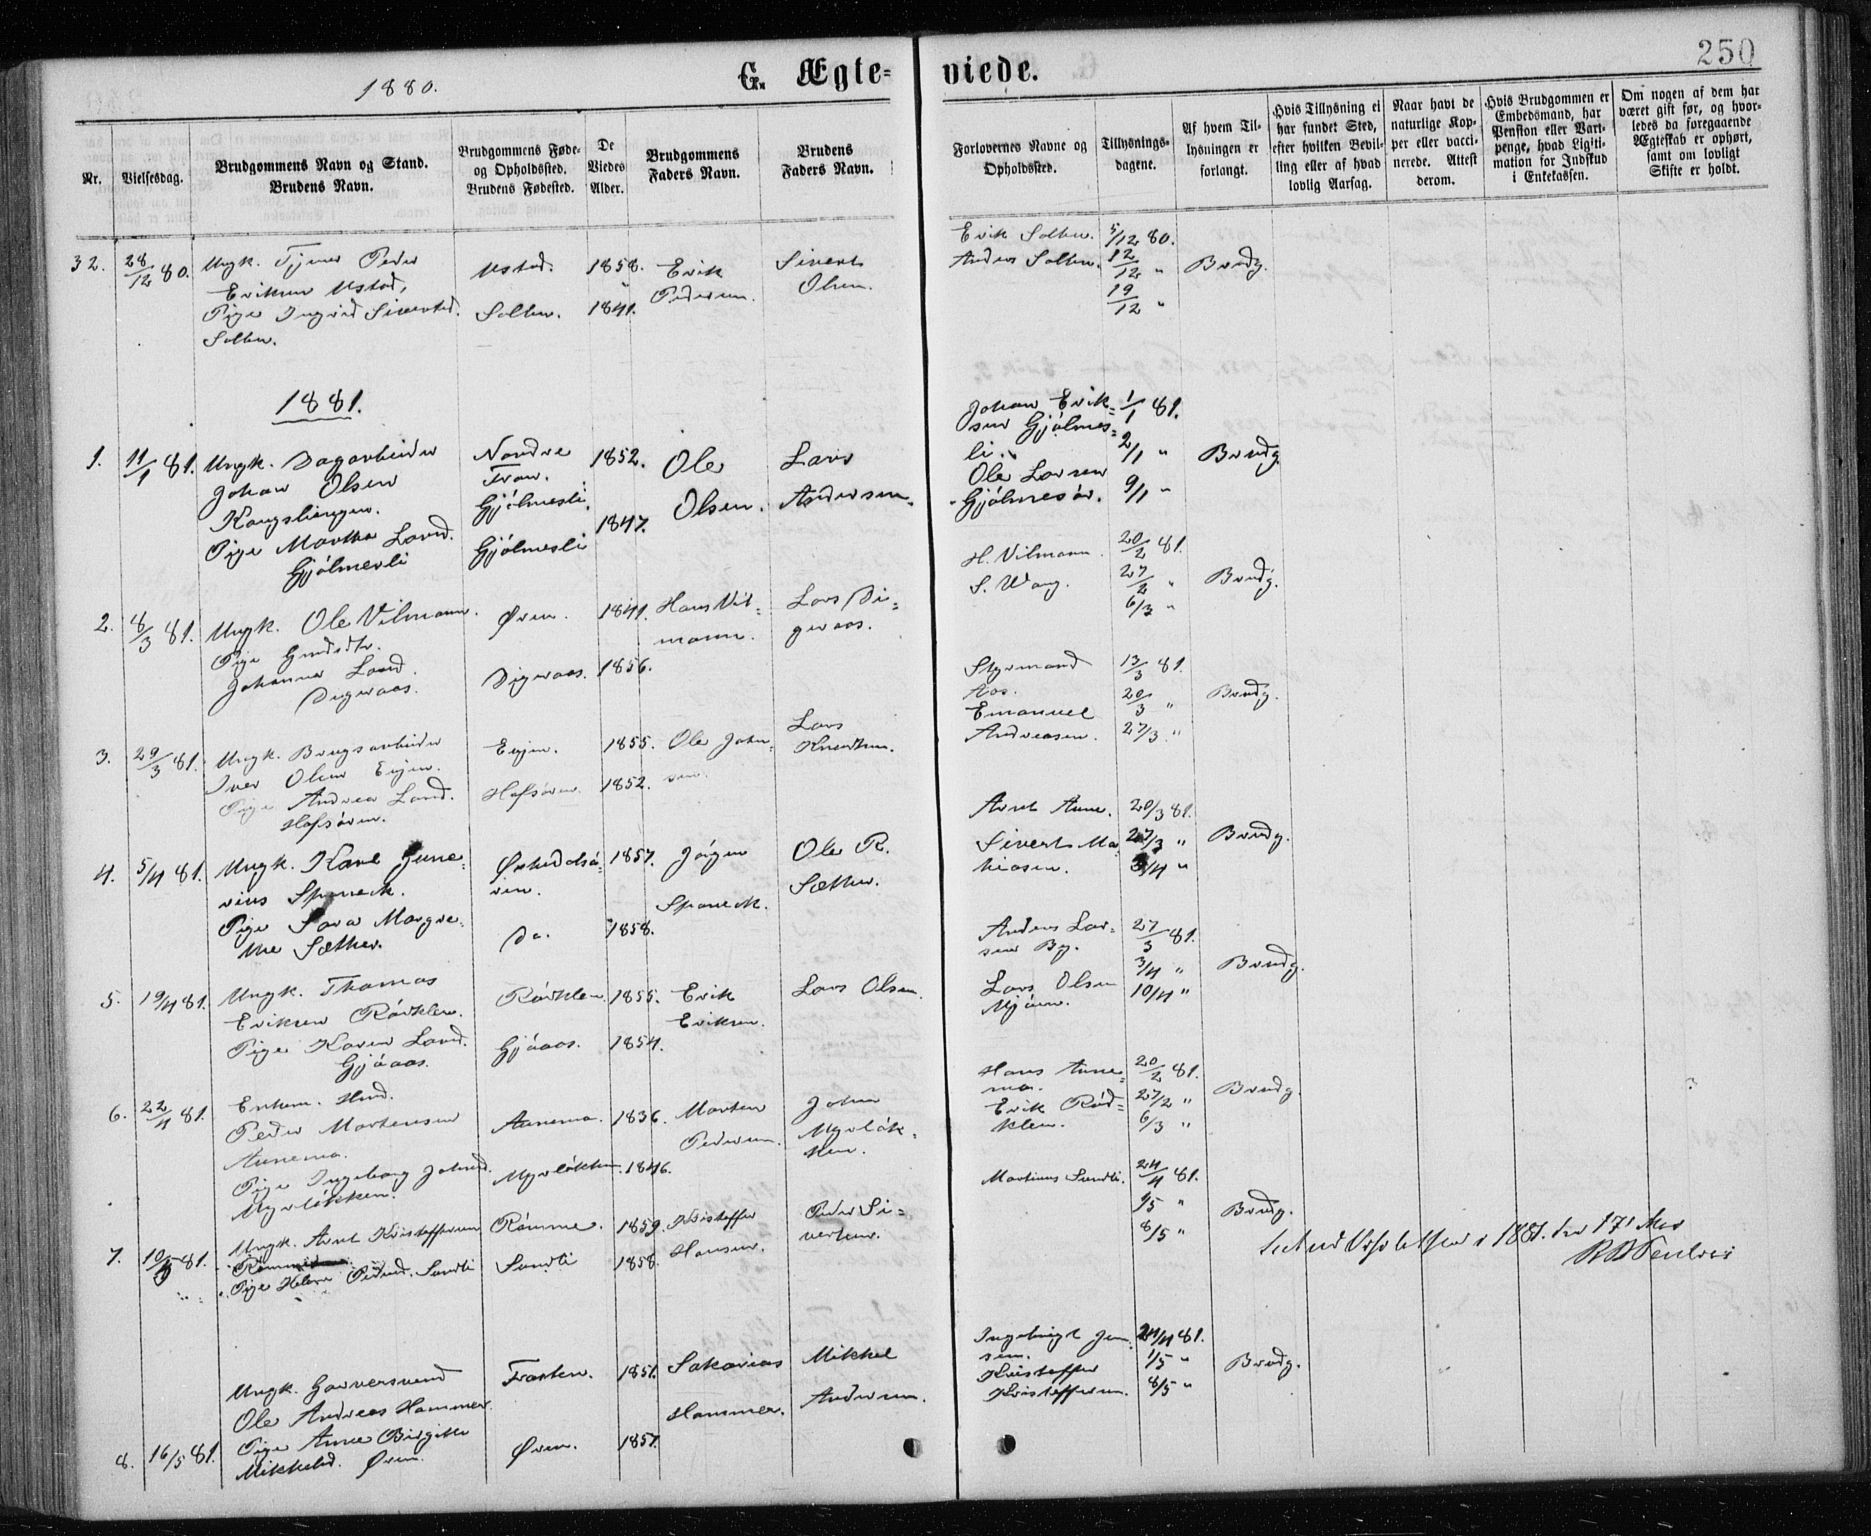 1880.
G. Ægte-
viede.
250
Nr.
Vielsesdag.
Brudgommens Navn og Stand.
Brudens Navn.
Brudgommens Føde-
og Opholdssted.
Brudens Fødested.
De
Viedes
Alder.
Brudgommens
Faders Navn.
Brudens
Faders Navn.
Forlovernes Navne og
Opholdssted.
Tillysnings-
dagene.
Af hvem Til-
lysningen er
forlangt.
Hvis Tillysning ei
har fundet Sted,
efter hvilken Bevil-
ling eller af hvad
lovlig Aarsag.
Naar havt de
naturlige Kop-
per eller vacci-
nerede. Attest
derom.
Hvis Brudgommen er
Embedsmand, har
Pension eller Vart-
penge, hvad Ligiti-
mation for Indskud
i Enkekassen.
Om nogen af dem har
været gift før, og hvor-
ledes da foregaaende
Ægteskab er ophørt,
samt om lovligt
Skifte er holdt.
32.
28/12 80.
Ungk. Tjener Peder
Eriksen Ustad,
Pige Ingrid Sivertsd.
Solben.
Ustad.
Solben.
1858.
1841.
Erik
Pedersen.
Siverts
Olsen.
Erik Solben.
Anders Solben.
5/12 80.
12/12 "
19/12 "
Brudg.
1881.
1.
11/1 81.
Ungk. Dagarbeider
Johan Olsen
Kongslingen.
Pige Martha Larsd.
Gjølmesli
Nordre
Fron.
Gjølmesli.
Gjølmesli
1852.
1847.
Ole
Olsen.
Lars
Andersen.
Johan Erik-
sen Gjølmes-
li.
Ole Larsen
Gjølmesør.
1/1 81.
2/1 "
9/1 "
Brudg
2.
8/3 81.
Ungk. Ole Vilmann.
Pige Gundstr.
Johanna Larsd.
Digeraas.
Øren.
Digeraas.
1841.
1856.
Hans Vil-
mann.
Lars Di-
geraas.
H. Vilmann.
S. Wang.
20/2 81.
27/2 "
6/3 "
Brudg.
3.
29/3 81.
Ungk. Brugsarbeider
Iver Olsen Eijen.
Pige Andrea Larsd.
Hofsøren.
Eijen.
Hofsøren.
1855.
1852.
Ole John-
sen.
Lars
Knudsen.
Styrmand
Aas.
Emanuel
Andreasen.
13/3 81.
20/3 "
27/3 "
Brudg.
4.
5/4 81.
Ungk. Karl June-
rius Sponeck.
Pige Sara Margre-
the Sæther.
Orkedalsø-
ren.
Do.
1857.
1858.
Jørgen
Sponeck.
Ole R.
Sæther.
Arnt Aune.
Sivert Ma-
thiasen.
20/3 81.
27/3 "
3/4 "
Brudg.
5.
19/4 81.
Ungk. Thomas
Eriksen Rødklev.
Pige Karen Larsd.
Gjøaas.
Rødklev.
Gjøaas.
1855.
1854.
Erik
Eriksen.
Lars Olsen.
Anders Lar-
sen By.
Lars Olsen
Mjøen.
27/3 81.
3/4 "
10/4 "
Brudg.
6.
22/4 81.
Enkem. Husd.
Peder Mortensen
Aunemo.
Pige Ingeborg Johnsd.
Myrløkken.
Aunemo.
Myrløkken.
1836.
1846.
Morten
Pedersen.
John
Myrløk-
ken.
Hans Aune-
mo.
Erik Rød-
klev.
20/2 81.
27/2 "
6/3 "
Brudg
7.
10/5 81.
Ungk. Arnt Kristoffersen
Rømme
Pige Helene Pedersd. Sundli
Rømme.
Sundli
1859.
1858.
Kristoffer
Hansen.
Peder Si-
vertsen.
Martinus Sundli.
24/4 81.
1/5 "
8/5 "
Brudg.
1881. den 17' Mai
8.
16/5 81.
Ungk. Garversvend
Ole Andreas Hammer.
Pige Anne Birgitte
Mikkelsd. Øren.
Frosten.
Øren.
1851.
1857.
Sakarias
Hammer.
Mikkel
Andersen.
Ingebrigt Jen-
sen.
Kristoffer
Kristoffersen.
24/4 81.
1/5 "
8/5 "
Brudg.